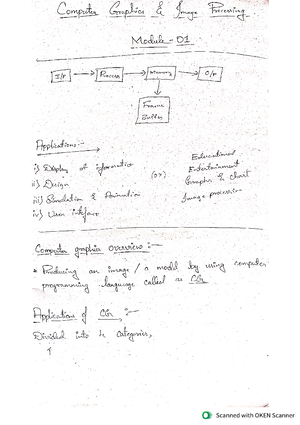 Computer Graphics & Image Processing
Module - 01
I/P Process Memory O/P
Frame
Buffer
Applications :-
i) Display of information
ii) Design
iii) Simulation & Animation
iv) User interface
(or)
Educational
Entertainment
Graphs & chart
Image processing
Computer graphics overview :-
* Producing an image / a model by using computer
programming language called as CG
Applications of CG :-
Divided into 4 categories,
Scanned with OKEN Scanner